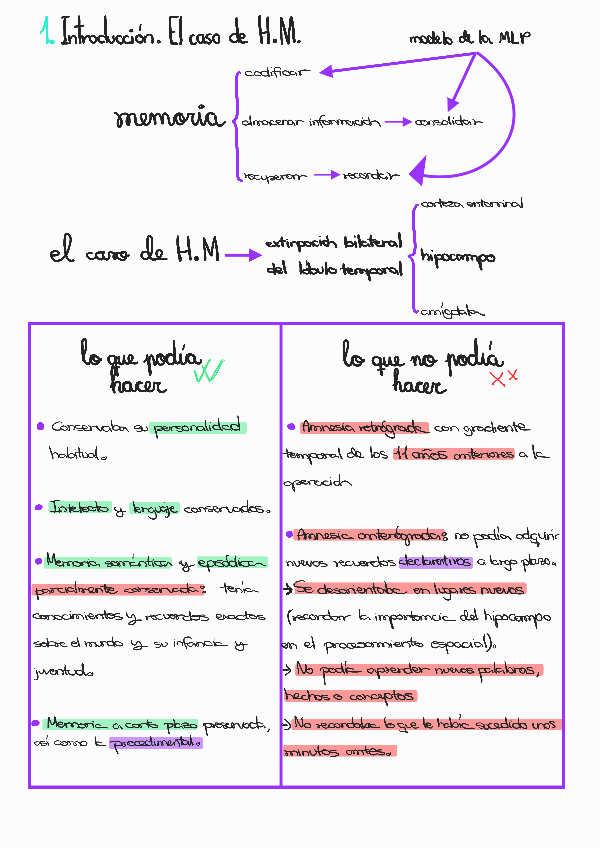 1. Introducción. El caso de H.M.
modelo de la MLP
codificar
memoria
almacenar información → consolidar
recuperar → recordar
corteza entorrinal
el caso de H.M → extirpación bilateral
del lóbulo temporal
hipocampo
amígdala
lo que podía
hacer
• Conservaba su personalidad
habitual.
• Intelecto y lenguaje conservados.
• Memoria semántica y episódica
parcialmente conservada: tenía
conocimientos y recuerdos exactos
sobre el mundo y su infancia y
juventud.
• Memoria a corto plazo preservada,
así como la procedimental.
lo que no podía
hacer
• Amnesia retrógrada con gradiente
temporal de los 11 años anteriores a la
operación
• Amnesia anterógrada: no podía adquirir
nuevos recuerdos declarativos a largo plazo.
→ Se desorientaba en lugares nuevos
(recordar la importancia del hipocampo
en el procesamiento espacial).
→ No podía aprender nuevas palabras,
hechos o conceptos
→ No recordaba lo que le había sucedido unos
minutos antes.